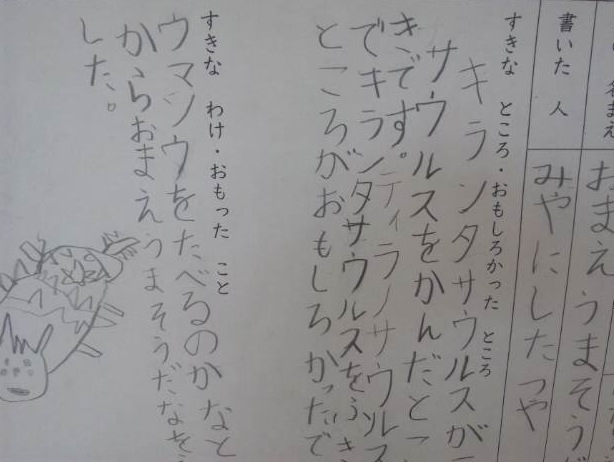 名まえ
おまえうまそうだ
書いた 人
みやにしたつや
すきな ところ・おもしろかった ところ
キランタサウルスが
サウルスをかんだとこ
きです。ティラノサウルス
でキランタサウルスをふき
ところがおもしろかったで
すきな わけ・おもった こと
ウマソウをたべるのかなと
からおまえうまそうだなそう
した。